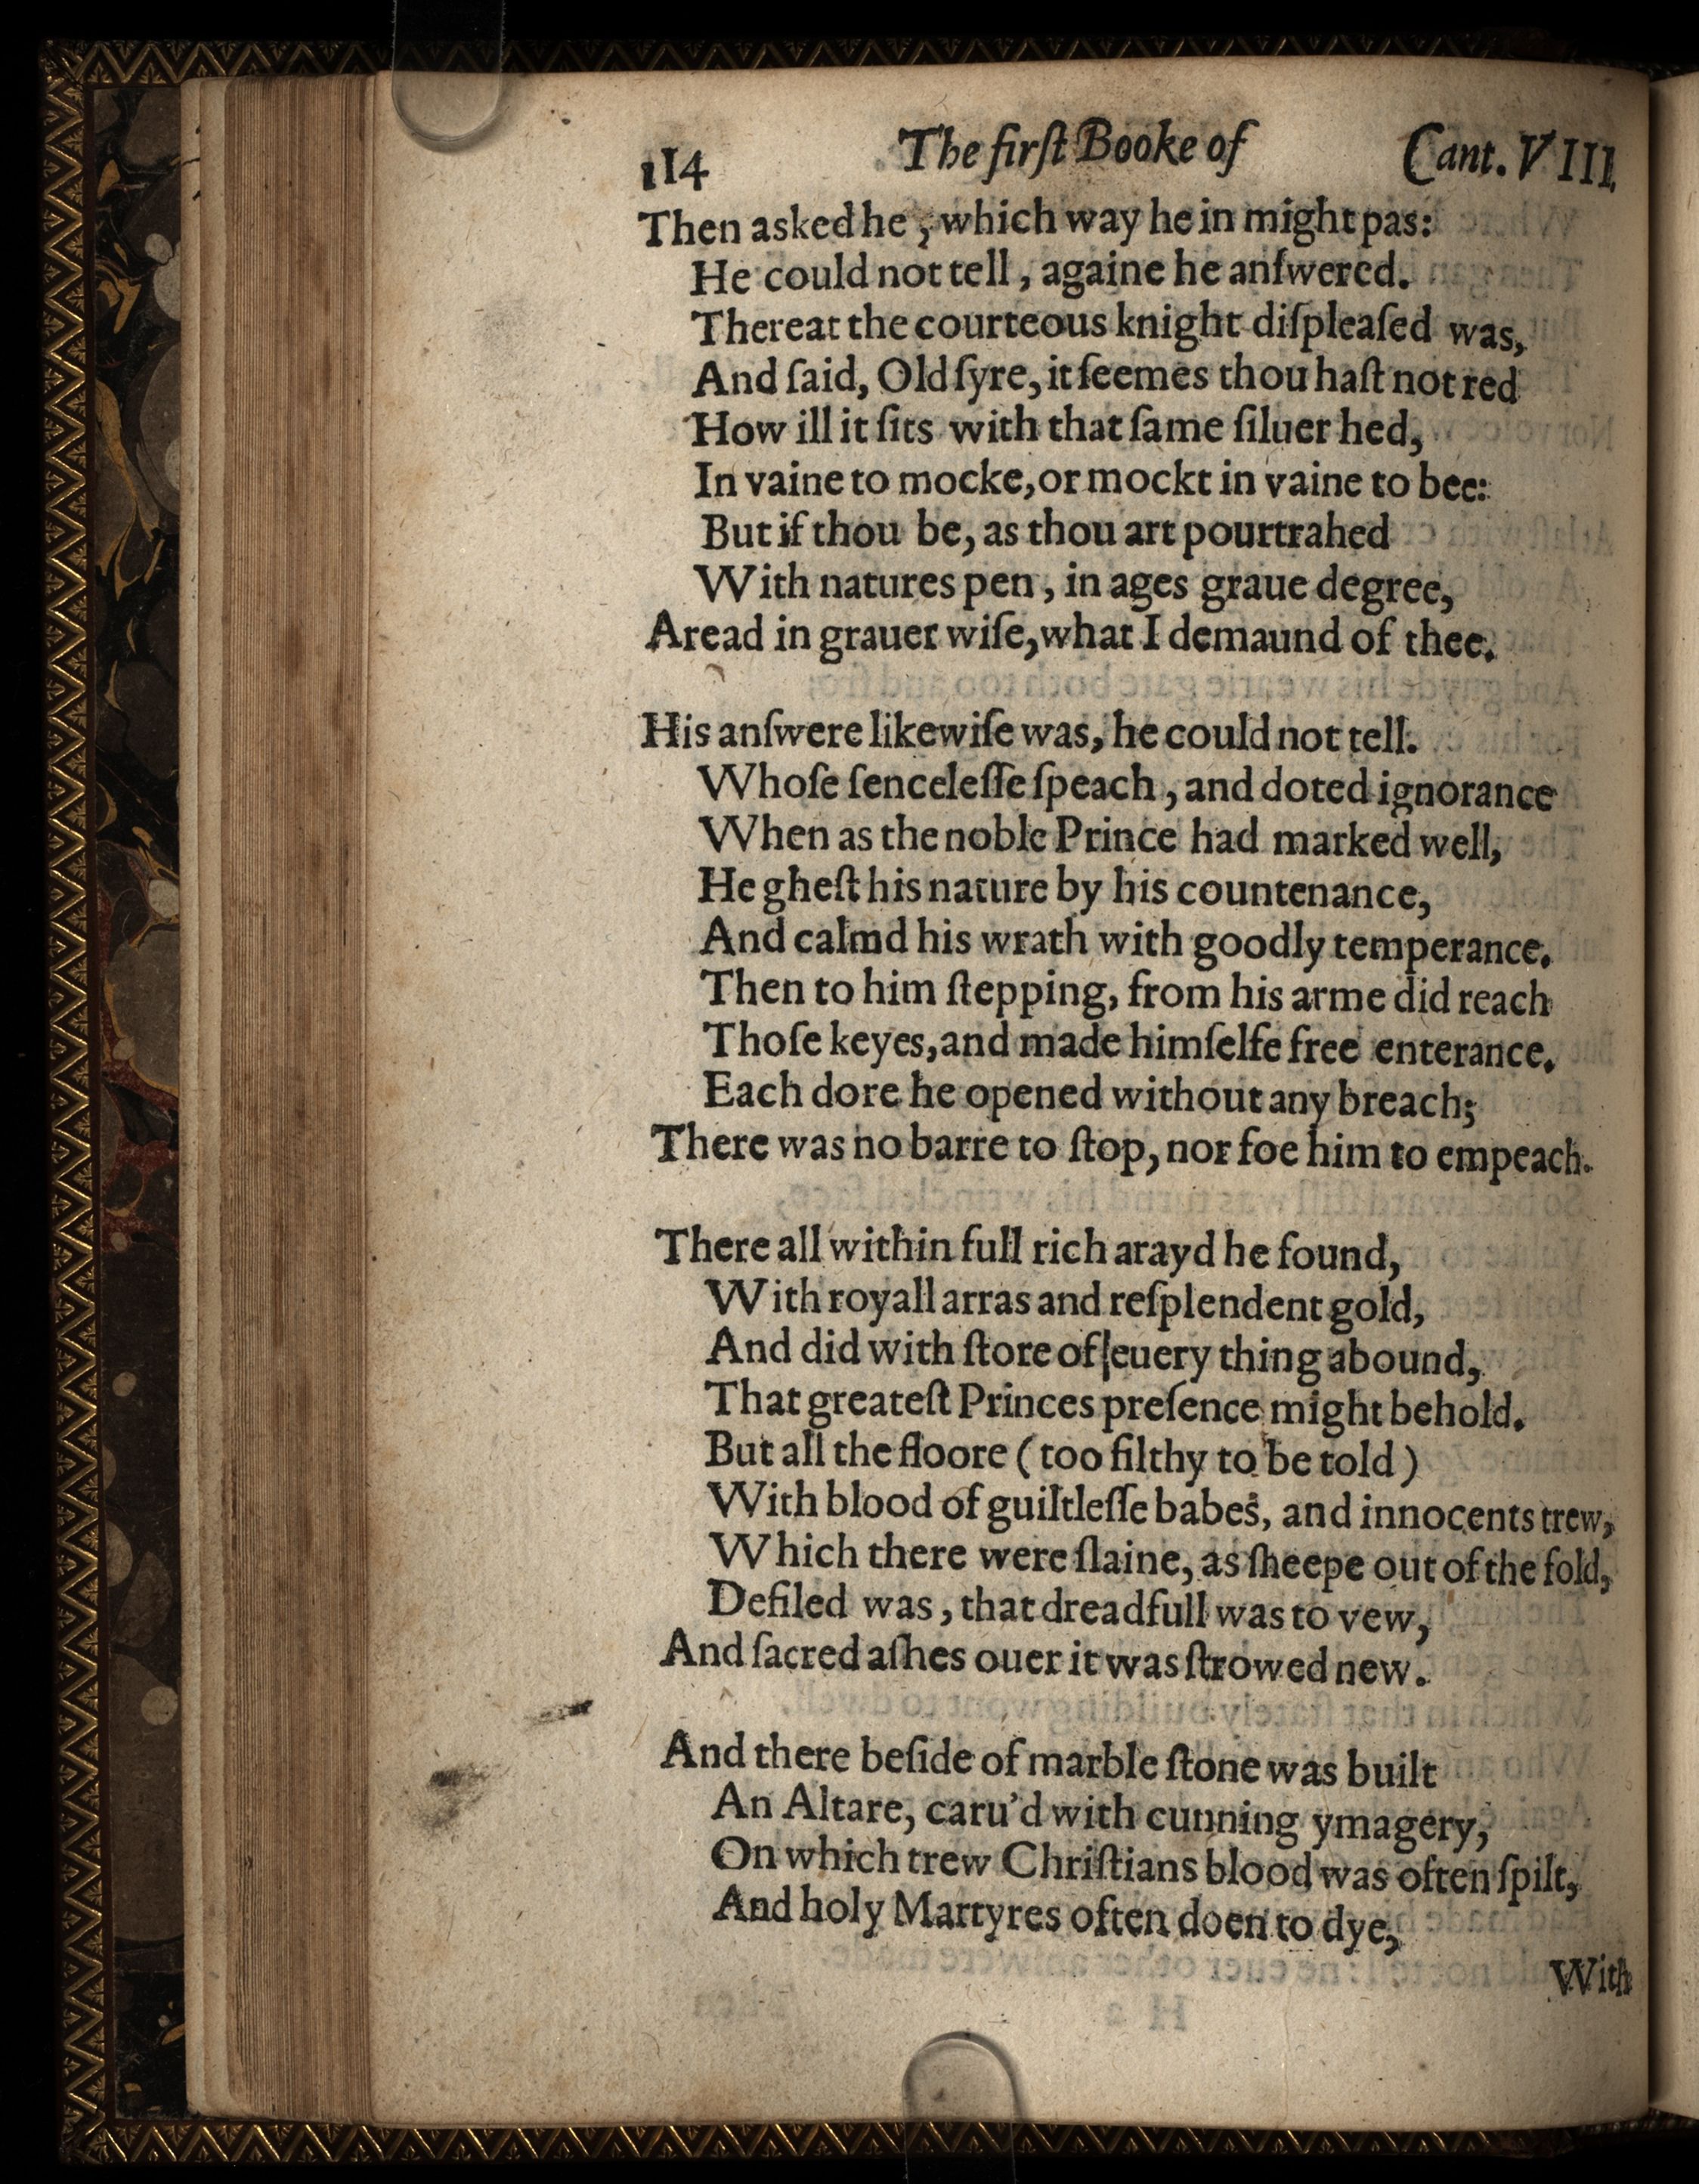 114 The firſt Booke of Cant. VIII.
Then asked he, which way he in might pas:
He could not tell, againe he anſwered.
Thereat the courteous knight diſpleaſed was,
And ſaid, Old ſyre, it ſeemes thou haſt not red
How ill it ſits with that ſame ſiluer hed,
In vaine to mocke, or mockt in vaine to bee:
But if thou be, as thou art pourtrahed
With natures pen, in ages graue degree,
Aread in grauer wiſe, what I demaund of thee.
His anſwere likewiſe was, he could not tell.
Whoſe ſenceleſſe ſpeach, and doted ignorance
When as the noble Prince had marked well,
He gheſt his nature by his countenance,
And calmd his wrath with goodly temperance.
Then to him ſtepping, from his arme did reach
Thoſe keyes, and made himſelfe free enterance.
Each dore he opened without any breach;
There was no barre to ſtop, nor foe him to empeach.
There all within full rich arayd he found,
With royall arras and reſplendent gold,
And did with ſtore of euery thing abound,
That greateſt Princes preſence might behold.
But all the floore (too filthy to be told)
With blood of guiltleſſe babes, and innocents trew,
Which there were ſlaine, as ſheepe out of the fold,
Defiled was, that dreadfull was to vew,
And ſacred aſhes ouer it was ſtrowed new.
And there beſide of marble ſtone was built
An Altare, caru'd with cunning ymagery,
On which trew Chriſtians blood was often ſpilt,
And holy Martyres often doen to dye,
With